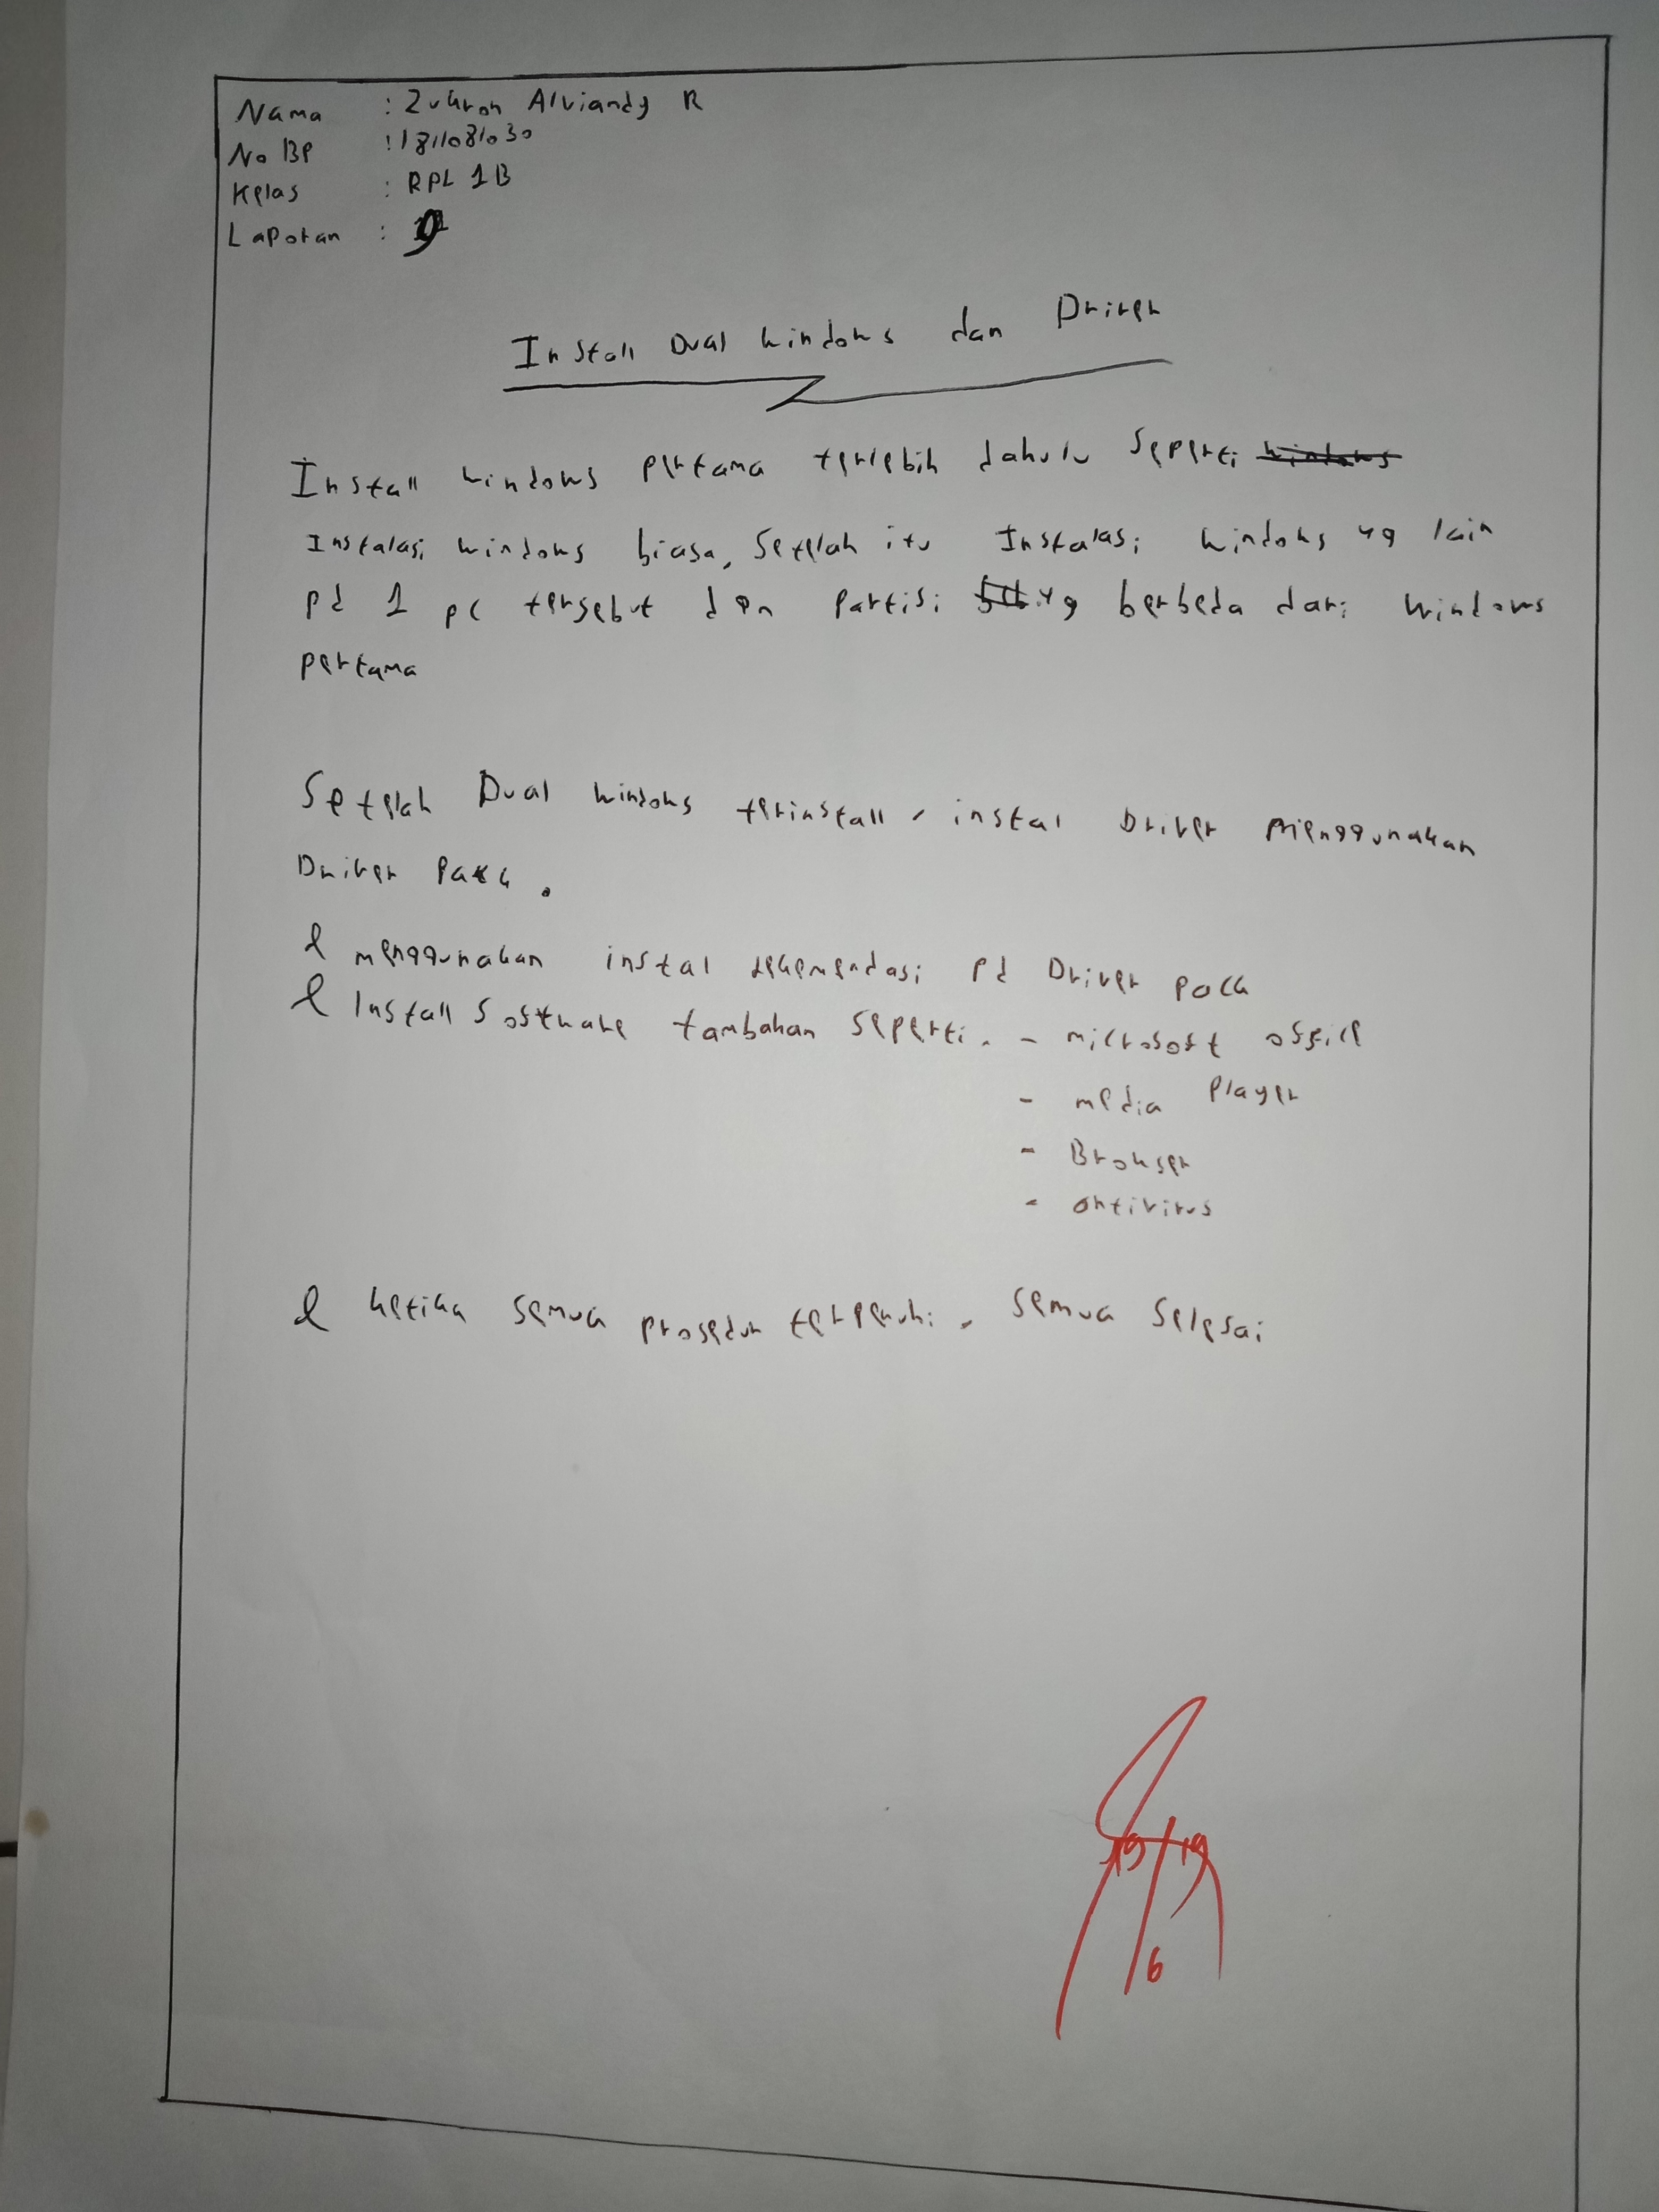 Nama : Zukron Alviandy R
No BP : 1811081030
Kelas : RPL 1B
Laporan : 9
Install Dual Windows dan Driver
Install windows pertama terlebih dahulu seperti
Instalasi windows biasa, setelah itu Instalasi windows yg lain
pd 1 pc tersebut dan Partisi yg berbeda dari windows
pertama
Setelah Dual windows terinstall, instal Driver menggunakan
Driver Pack.
menggunakan instal rekomendasi pd Driver pack
Install software tambahan seperti. - microsoft office
- media Player
- Browser
- antivirus
ketika semua prosedur terpenuhi, semua selesai
19/6 19